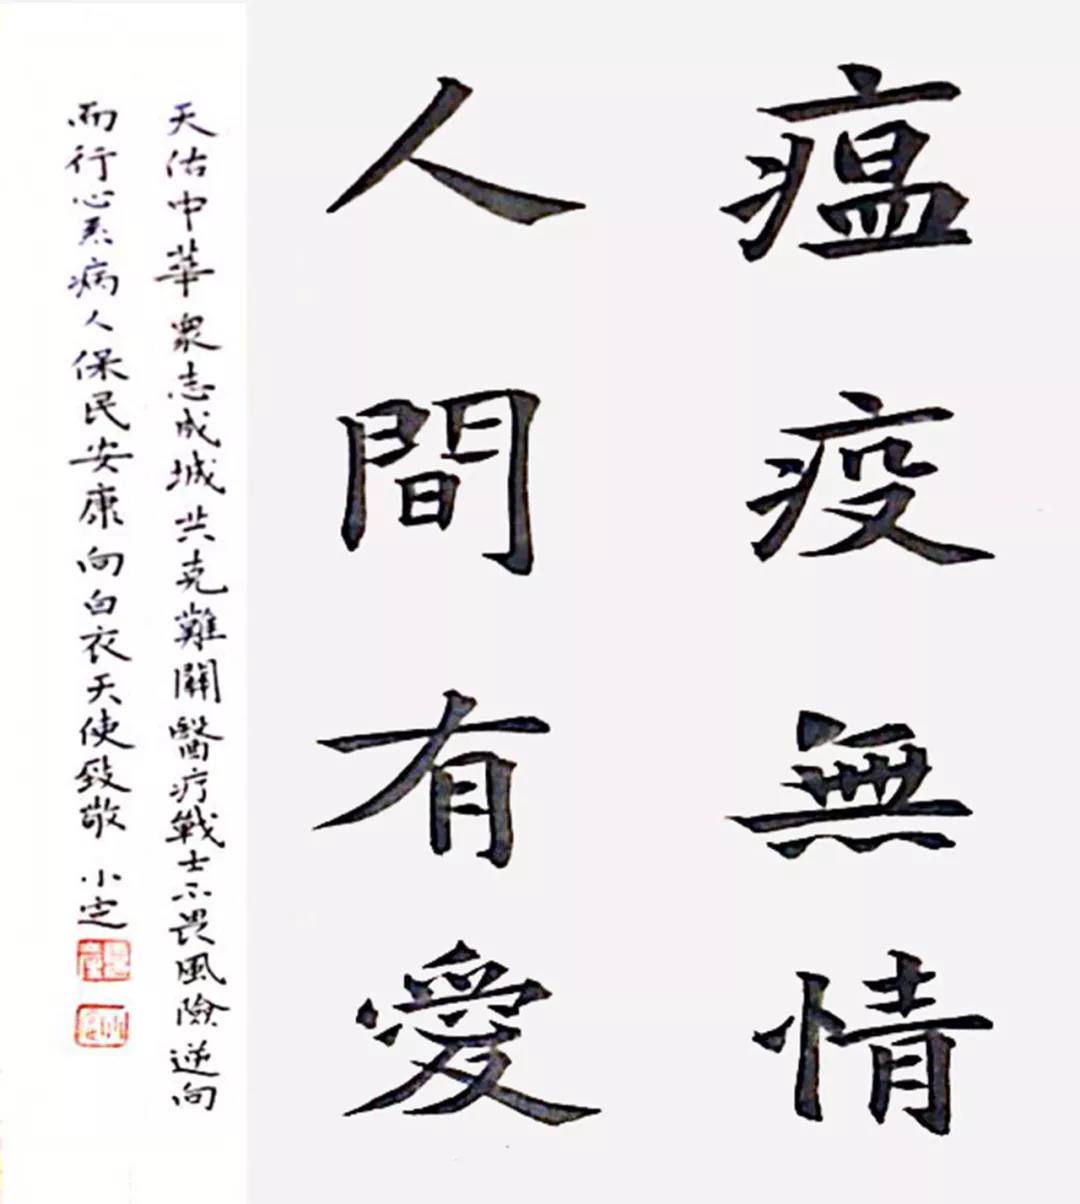 瘟疫無情
人間有愛
天佑中華眾志成城共克難關醫疗戰士不畏風險逆向
而行心系病人保民安康向白衣天使致敬 小定